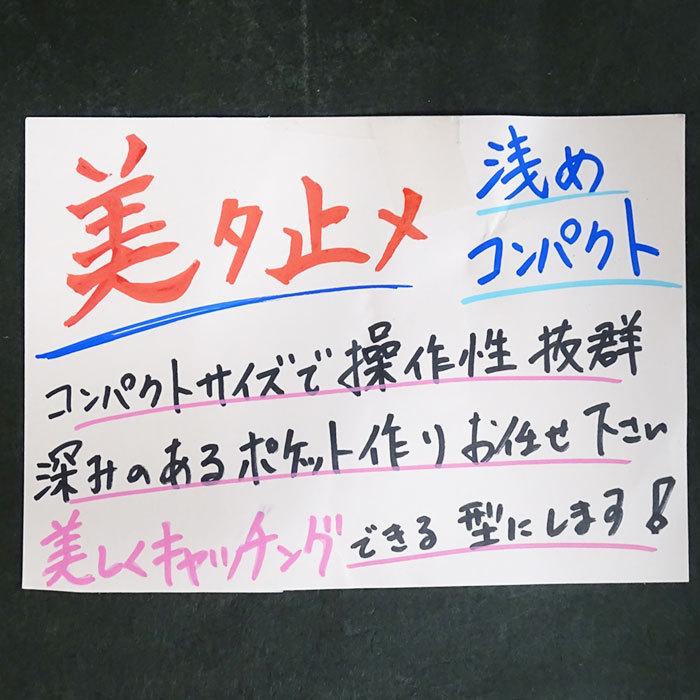 美タ止メ
浅め
コンパクト
コンパクトサイズで操作性抜群
深みのあるポケット作りお任せ下さい
美しくキャッチングできる型にします!